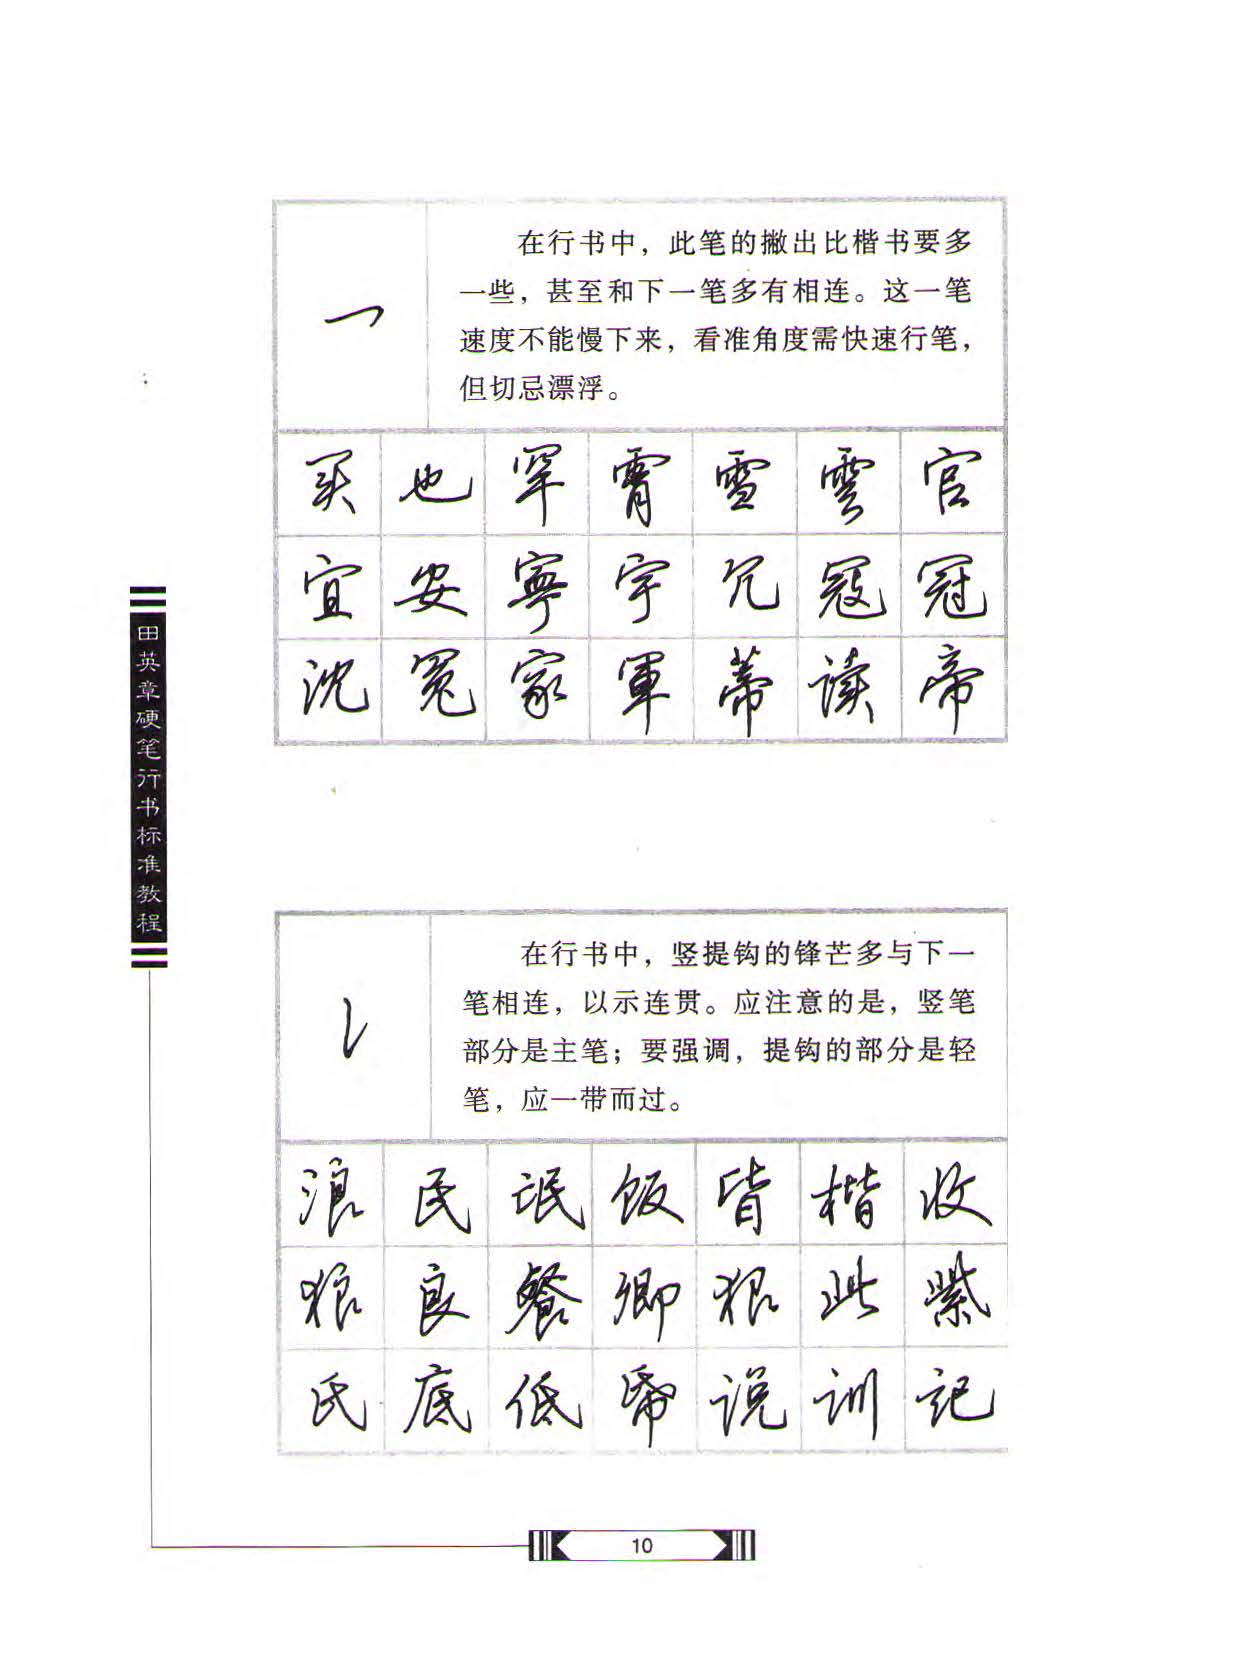 在行书中，此笔的撇出比楷书要多
一些，甚至和下一笔多有相连。这一笔
速度不能慢下来，看准角度需快速行笔，
但切忌漂浮。
买也罕霄雪雲官
宜安寧宇冗寇冠
沈冤家軍蒂读帝
田英章硬笔行书标准教程
在行书中，竖提钩的锋芒多与下一
笔相连，以示连贯。应注意的是，竖笔
部分是主笔；要强调，提钩的部分是轻
笔，应一带而过。
浪民氓饭皆楷收
狼良餐卿狠此紫
氏底低帋说训記
10